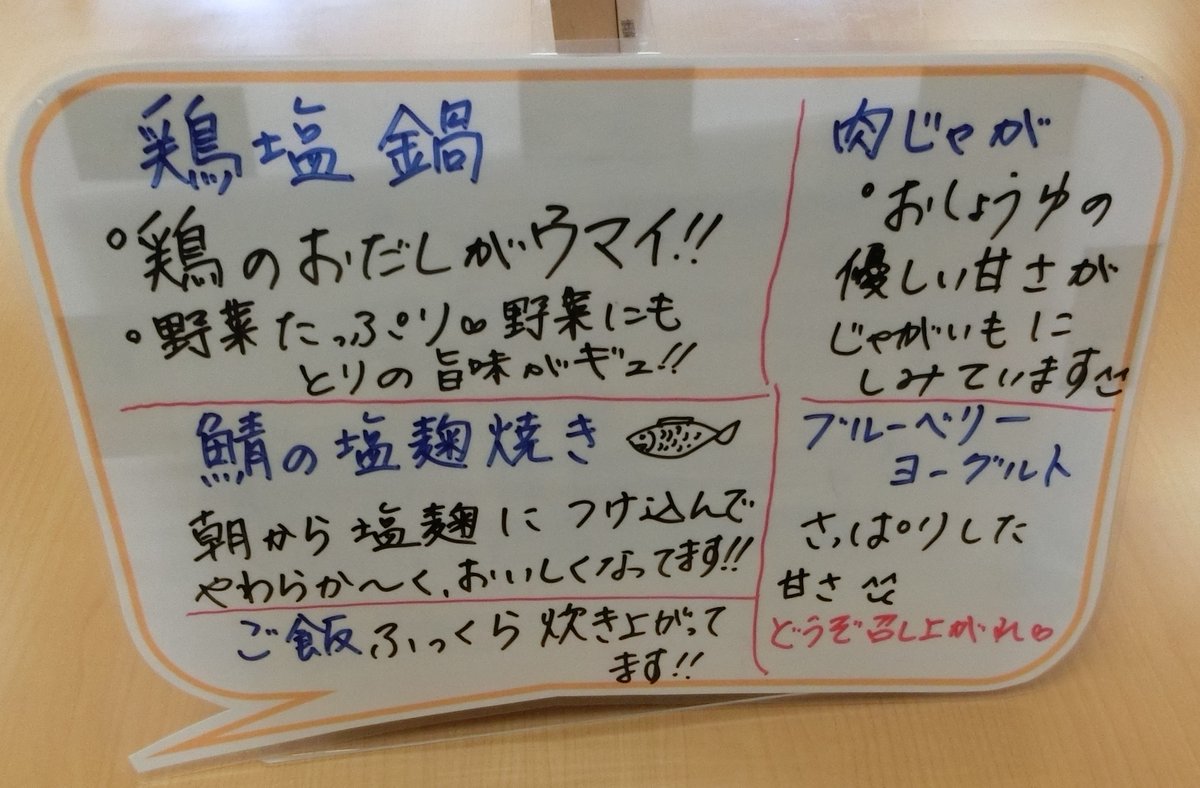 鶏塩鍋
°鶏のおだしがウマイ!!
°野菜たっぷり♡野菜にも
とりの旨味がギュ!!
鯖の塩麹焼き
朝から塩麹につけ込んで
やわらか〜く、おいしくなってます!!
ご飯 ふっくら炊き上がって
ます!!
肉じゃが
°おしょうゆの
優しい甘さが
じゃがいもに
しみています
ブルーベリー
ヨーグルト
さっぱりした
甘さ
どうぞ召し上がれ♡